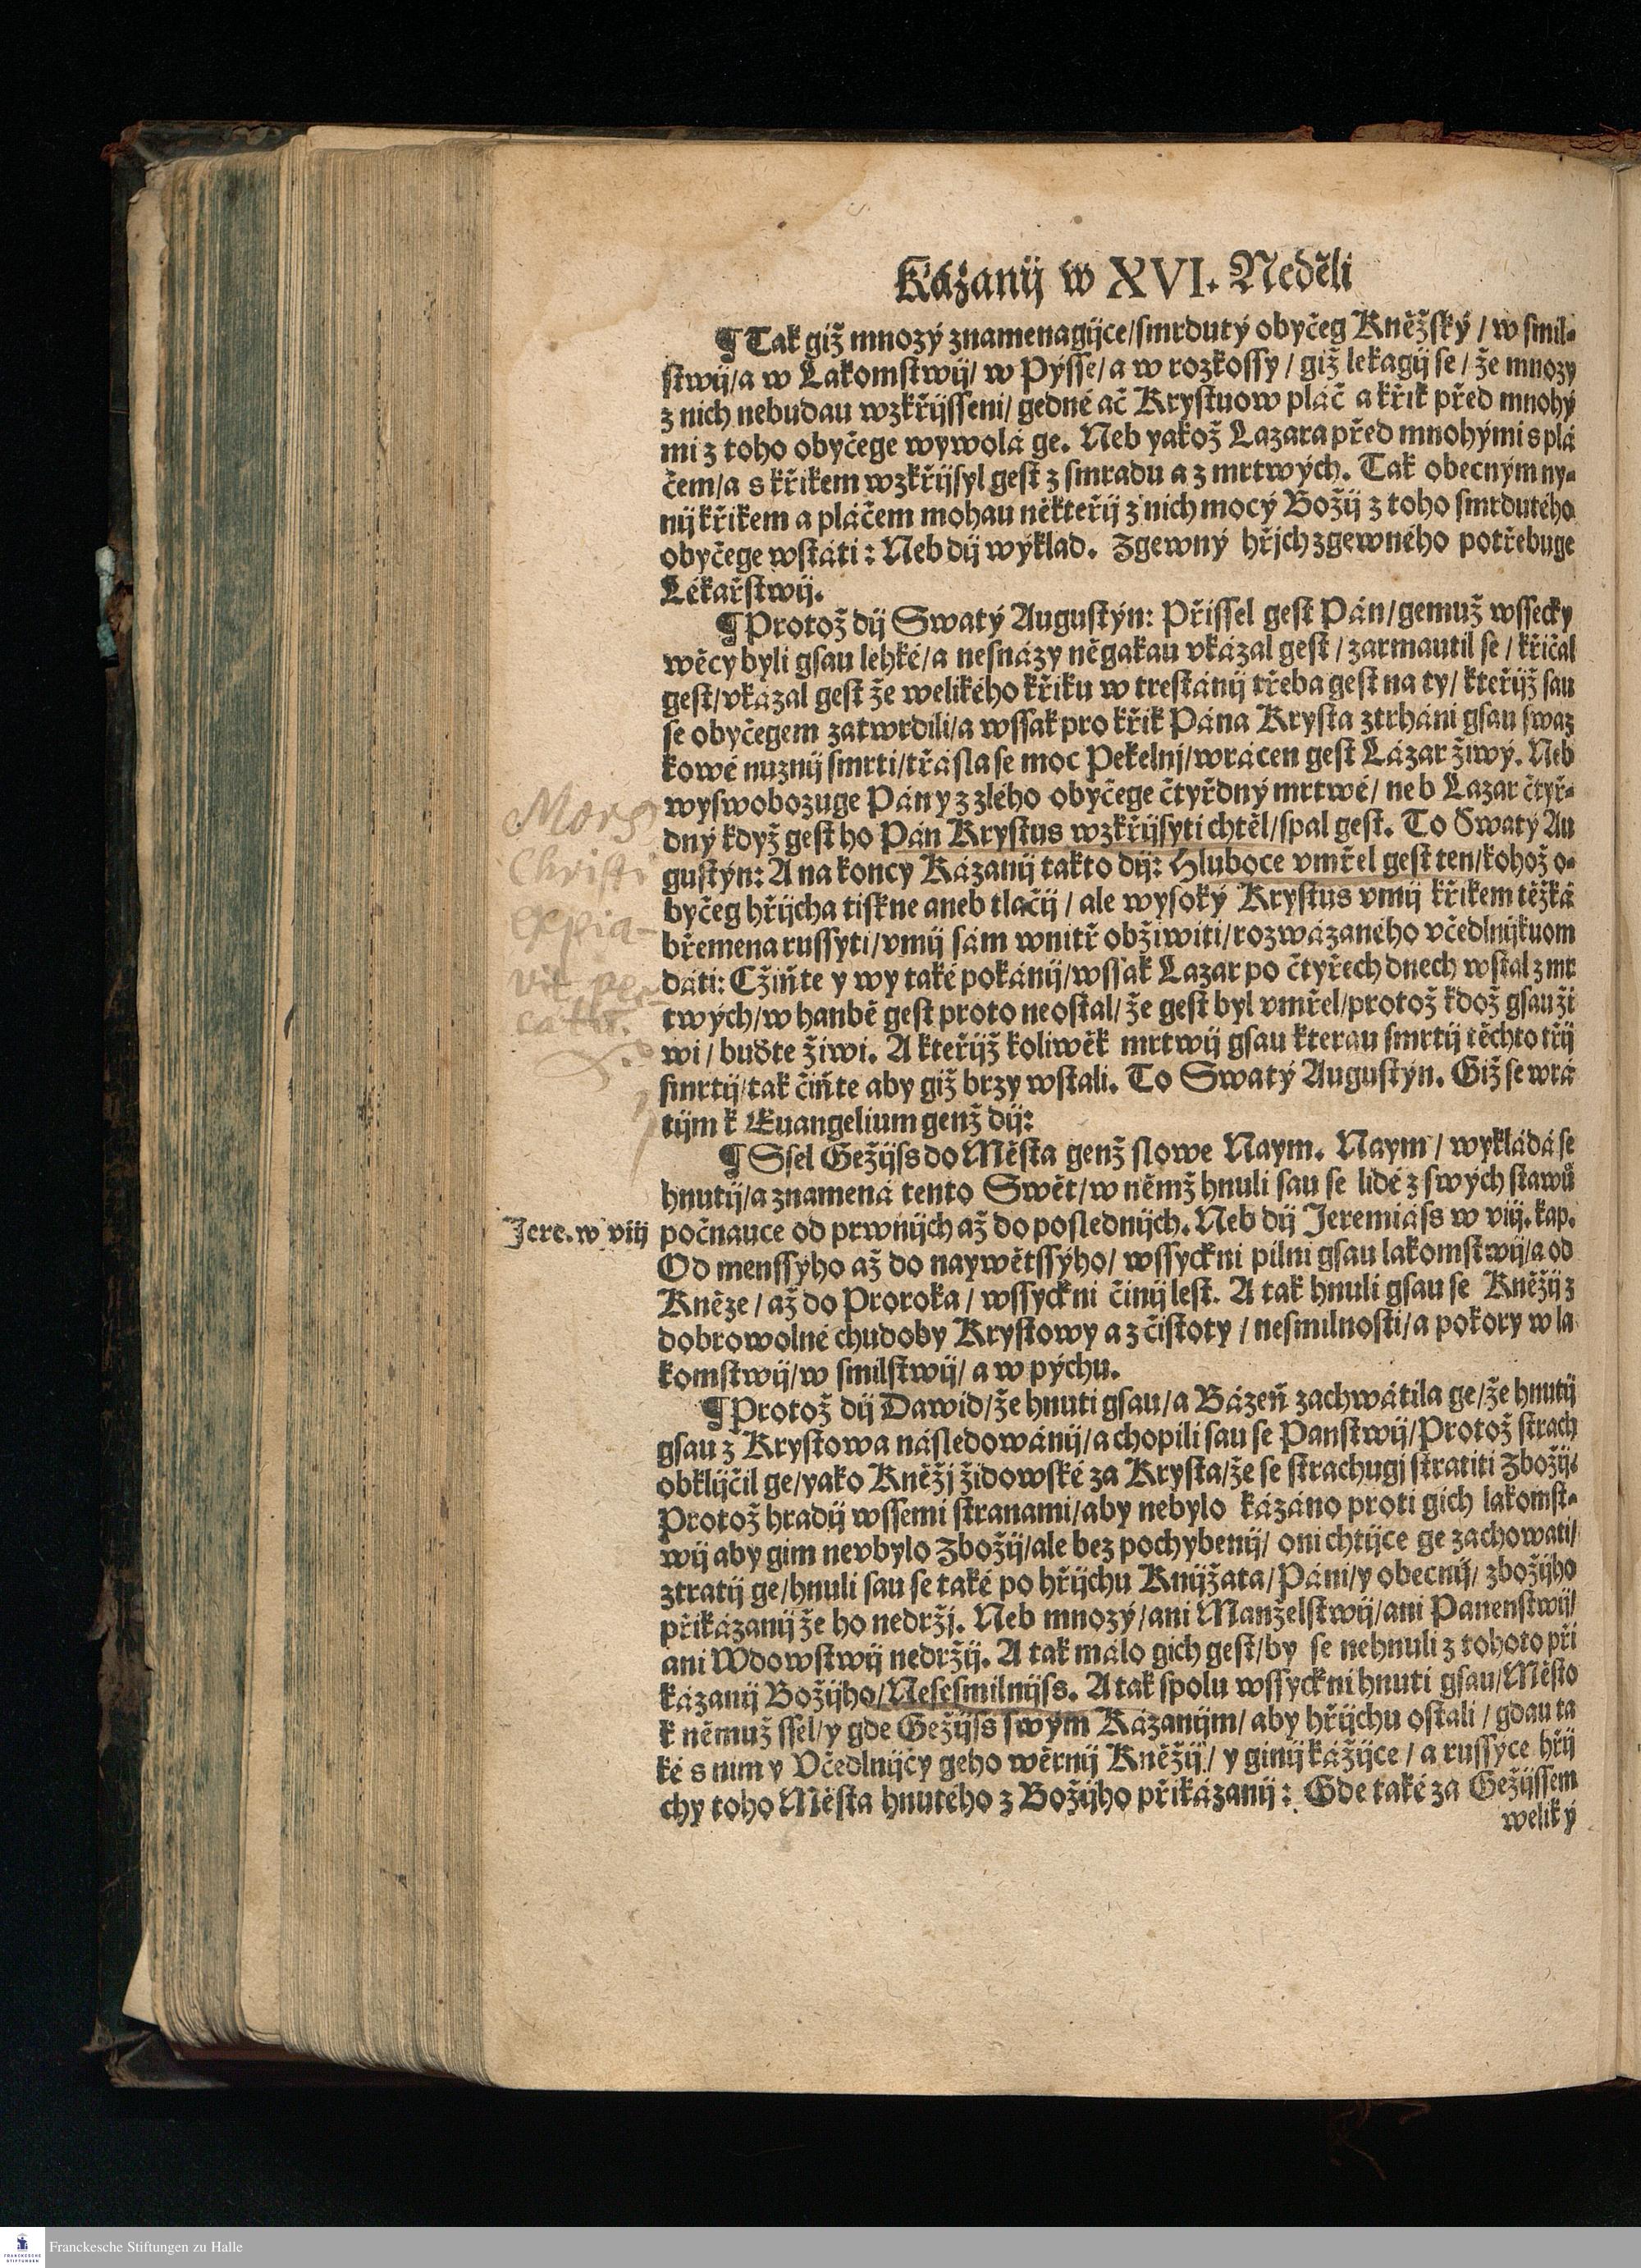 Kázanij w XVI. Neděli
¶ Tak giž mnozý znamenagijce/smrdutý obyčeg Kněžský / w smil-
stwij/a w Lakomstwij/ w Pýsse/a w rozkossy / giž lekagij se / že mnozy
z nich nebudau wzkřijsseni/ gedné ač Krystuow pláč a křik před mnohý
mi z toho obyčege wywolá ge. Neb yakož Lazara před mnohými s plá
čem/a s křikem wzkřijsyl gest z smradu a z mrtwých. Tak obecným ny-
nij křikem a pláčem mohau někteřij z nich mocý Božij z toho smrdutého
obyčege wstáti: Neb dij wýklad. Zgewný hřjch zgewného potřebuge
Lékařstwij.
¶ Protož dij Swatý Augustýn: Přissel gest Pán/gemuž wssecky
wěcy byli gsau lehké/a nesnázy něgakau vkázal gest / zarmautil se / křičal
gest/vkázal gest že welikého křiku w trestánij třeba gest na ty/ kteřijž sau
se obyčegem zatwrdili/a wssak pro křik Pána Krysta ztrháni gsau swaz
kowé nuznij smrti/třásla se moc Pekelnj/wrácen gest Lázar žiwý. Neb
wyswobozuge Pán y z zlého obyčege čtyřdný mrtwé/ neb Lazar čtyř-
dný když gest ho Pán Krystus wzkřijsyti chtěl/spal gest. To Swatý Au
gustýn: A na koncy Kázanij takto dij: Hluboce vmřel gest ten/kohož o-
byčeg hřijcha tiskne aneb tlačij / ale wysoký Krystus vmij křikem těžká
břemena russyti/vmij sám wnitř obžiwiti/rozwázaného včedlnijkuom
dáti: Cžiňte y wy také pokánij/wssak Lazar po čtyřech dnech wstal z mr
twých/w hanbě gest proto neostal/že gest byl vmřel/protož kdož gsau ži
wi / buďte žiwi. A kteřijž koliwěk mrtwij gsau kterau smrtij těchto třij
smrtij/tak čiňte aby giž brzy wstali. To Swatý Augustýn. Giž se wrá
tijm k Euangelium genž dij:
¶ Ssel Gežijss do Města genž slowe Naym. Naym / wykládá se
hnutij/a znamená tento Swět/w němž hnuli sau se lidé z swých stawů
počnauce od prwnijch až do poslednijch. Neb dij Jeremiáss w viij. kap.
Od menssyho až do naywětssýho/ wssyckni pilni gsau lakomstwij/a od
Kněze / až do Proroka / wssyckni činij lest. A tak hnuli gsau se Kněžij z
dobrowolné chudoby Krystowy a z čistoty / nesmilnosti/a pokory w la
komstwij/w smilstwij/ a w pýchu.
¶ Protož dij Dawid/že hnuti gsau/a Bázeň zachwátila ge/že hnutij
gsau z Krystowa následowánij/a chopili sau se Panstwij/Protož strach
obklijčil ge/yako Kněžj židowské za Krysta/že se strachugj stratiti Zbožij:
Protož hradij wssemi stranami/aby nebylo kázáno proti gich lakomst-
wij aby gim nevbylo Zbožij/ale bez pochybenij/ oni chtijce ge zachowati/
ztratij ge/hnuli sau se také po hřijchu Knijžata/Páni/y obecnij/ zbožijho
přikázanij že ho nedržj. Neb mnozý/ani Manželstwij/ani Panenstwij/
ani Wdowstwij nedržij. A tak málo gich gest/by se nehnuli z tohoto při
kázanij Božijho/Nesesmilnijss. A tak spolu wssyckni hnuti gsau/Město
k němuž ssel/y gde Gežijss swým Kázanijm/ aby hřijchu ostali / gdau ta
ké s nim y Včedlnijcy geho wěrnij Kněžij/ y ginij kážijce / a russyce hřij
chy toho Města hnutého z Božijho přikázanij: Gde také za Gežijssem
weliký
Mors
Christi
expia-
vit pec-
catũ.
Jere. w viij
Franckesche Stiftungen zu Halle